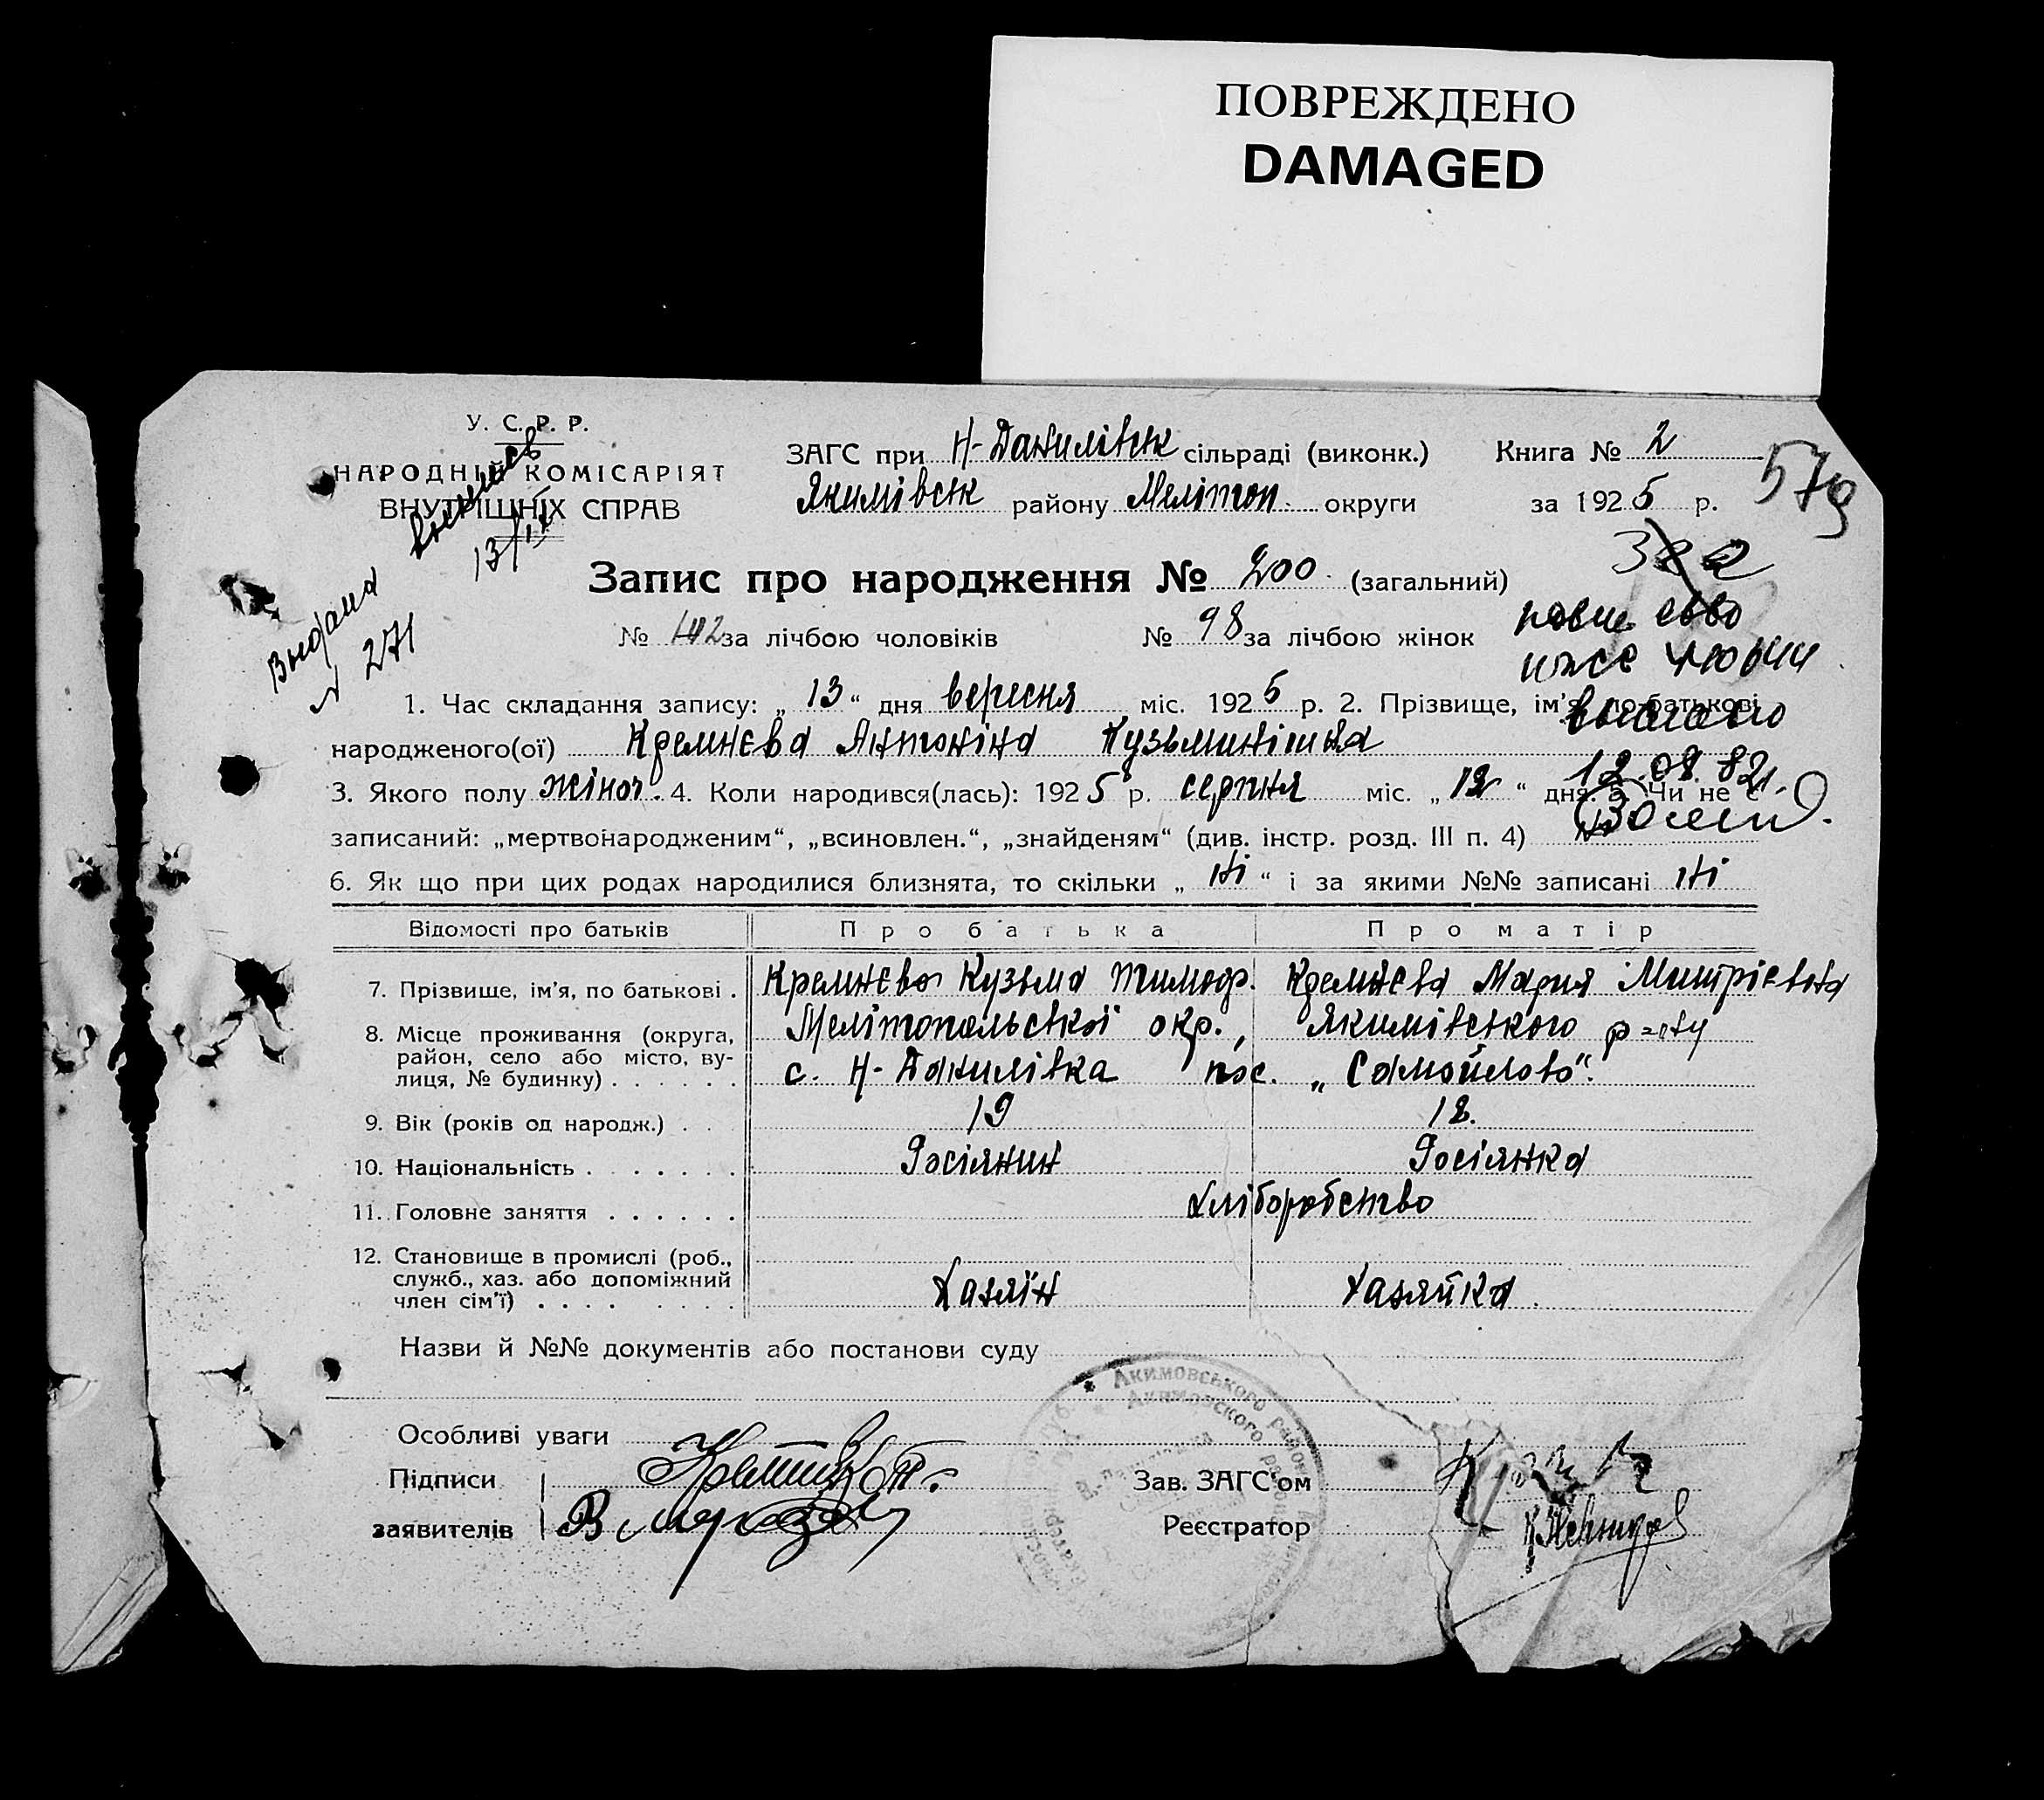 ПОВРЕЖДЕНО
DAMAGED
У. С. Р. Р.
НАРОДНІЙ КОМІСАРІЯТ
ВНУТРІШНІХ СПРАВ
ЗАГС при Н-Данилівськ сільраді (виконк.) Книга № 2
Якимівськ району Мелітоп. округи за 1925 р.
579
13/IX
Выдана
№ 271
Запис про народження № 200. (загальний)
№ 102 за лічбою чоловіків № 98 за лічбою жінок
повт. св-во
выслано
12.08.82г.
1. Час складання запису: „ 13 “ дня вересня міс. 1925 р. 2. Прізвище, ім'я, по-батькові
народженого(ої) Кремнєва Антоніна Кузьминішна
3. Якого полу жіноч. 4. Коли народився(лась): 1925 р. серпня міс. „ 12 “ дня. 5. Чи не є
записаний: „мертвонародженим“, „всиновлен.“, „знайденям“ (див. інстр. розд. III п. 4)
6. Як що при цих родах народилися близнята, то скільки „ ні “ і за якими №№ записані ні
Відомості про батьків Про батька Про матір
7. Прізвище, ім'я, по батькові . Кремнєв Кузьма Тимоф. Кремнєва Мария Митрієвна
8. Місце проживання (округа, район, село або місто, вулиця, № будинку) . . . . . . Мелітопольської окр., Якимівського р-ну
с. Н-Данилівка пос. „Самойлово“.
9. Вік (років од народж.) . . 19 18.
10. Національність . . . . . . . Росіянин Росіянка
11. Головне заняття . . . . . . Хліборобство
12. Становище в промислі (роб., служб., хаз. або допоміжний член сім'ї) . . . . . . . . Хазяїн Хазяйка.
Назви й №№ документів або постанови суду
Особливі уваги
Підписи
заявителів
Зав. ЗАГС'ом
Реєстратор
Акимовського район
Акимовского район